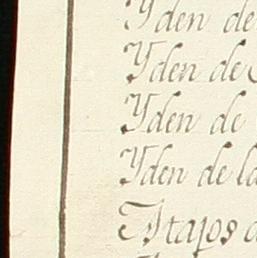 Yden de
Yden de
Yden de
Yden de la
Atajos